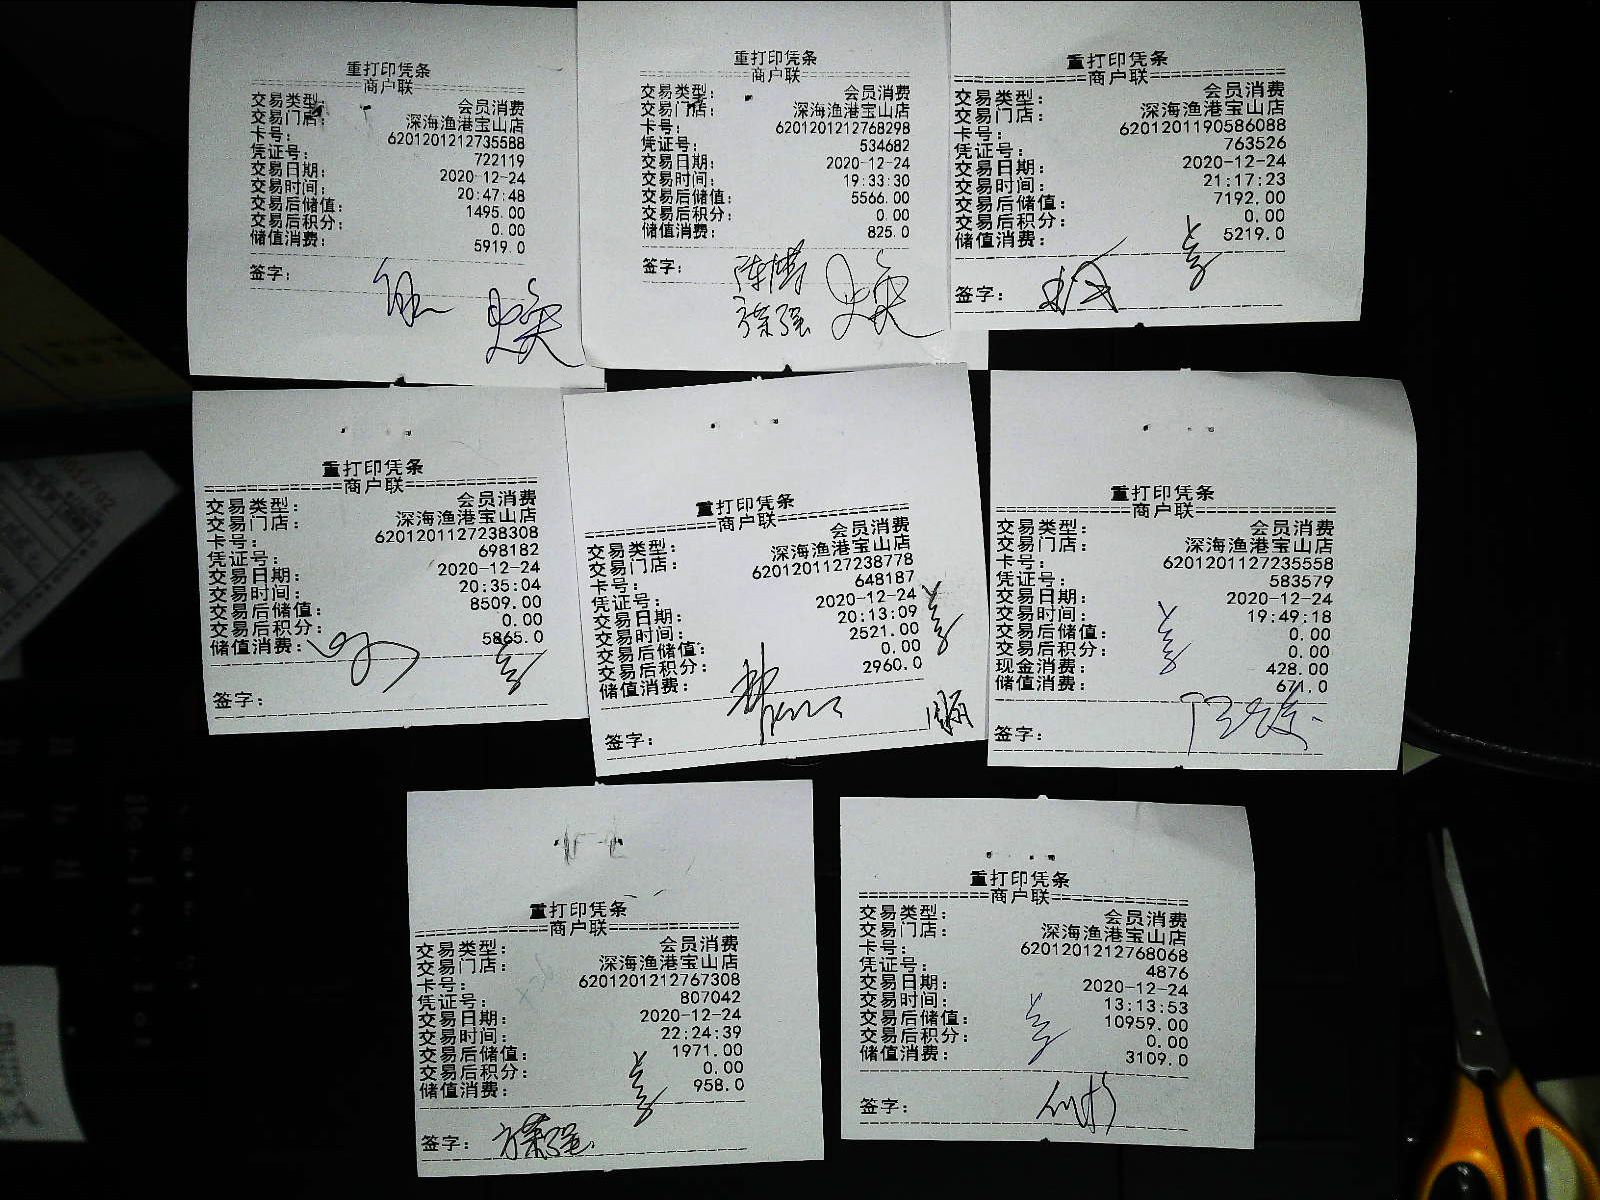 重打印凭条
商户联
交易类型： 会员消费
交易门店： 深海渔港宝山店
卡号： 6201201212735588
凭证号： 722119
交易日期： 2020-12-24
交易时间： 20:47:48
交易后储值： 1495.00
交易后积分： 0.00
储值消费： 5919.0
签字：
重打印凭条
商户联
交易类型： 会员消费
交易门店： 深海渔港宝山店
卡号： 6201201212768298
凭证号： 534682
交易日期： 2020-12-24
交易时间： 19:33:30
交易后储值： 5566.00
交易后积分： 0.00
储值消费： 825.0
签字：
重打印凭条
商户联
交易类型： 会员消费
交易门店： 深海渔港宝山店
卡号： 6201201190586088
凭证号： 763526
交易日期： 2020-12-24
交易时间： 21:17:23
交易后储值： 7192.00
交易后积分： 0.00
储值消费： 5219.0
签字：
重打印凭条
商户联
交易类型： 会员消费
交易门店： 深海渔港宝山店
卡号： 6201201127238308
凭证号： 698182
交易日期： 2020-12-24
交易时间： 20:35:04
交易后储值： 8509.00
交易后积分： 0.00
储值消费： 5865.0
签字：
重打印凭条
商户联
交易类型： 会员消费
交易门店： 深海渔港宝山店
卡号： 6201201127238778
凭证号： 648187
交易日期： 2020-12-24
交易时间： 20:13:09
交易后储值： 2521.00
交易后积分： 0.00
储值消费： 2960.0
签字：
重打印凭条
商户联
交易类型： 会员消费
交易门店： 深海渔港宝山店
卡号： 6201201127235558
凭证号： 583579
交易日期： 2020-12-24
交易时间： 19:49:18
交易后储值： 0.00
交易后积分： 0.00
现金消费： 428.00
储值消费： 671.0
签字：
重打印凭条
商户联
交易类型： 会员消费
交易门店： 深海渔港宝山店
卡号： 6201201212767308
凭证号： 807042
交易日期： 2020-12-24
交易时间： 22:24:39
交易后储值： 1971.00
交易后积分： 0.00
储值消费： 958.0
签字：
重打印凭条
商户联
交易类型： 会员消费
交易门店： 深海渔港宝山店
卡号： 6201201212768068
凭证号： 4876
交易日期： 2020-12-24
交易时间： 13:13:53
交易后储值： 10959.00
交易后积分： 0.00
储值消费： 3109.0
签字：